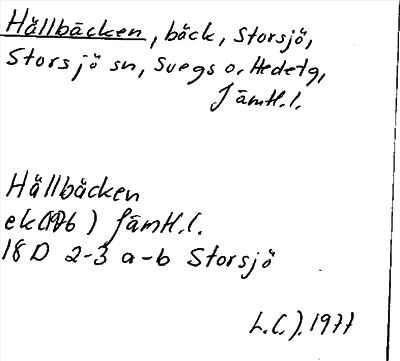 Hållbäcken, bäck, Storsjö,
Storsjö sn, Svegs o. Hedetg,
Jämtl.l.
Hållbäcken
ek(1976) Jämtl.l.
18 D 2-3 a-b Storsjö
L.C.J. 1977